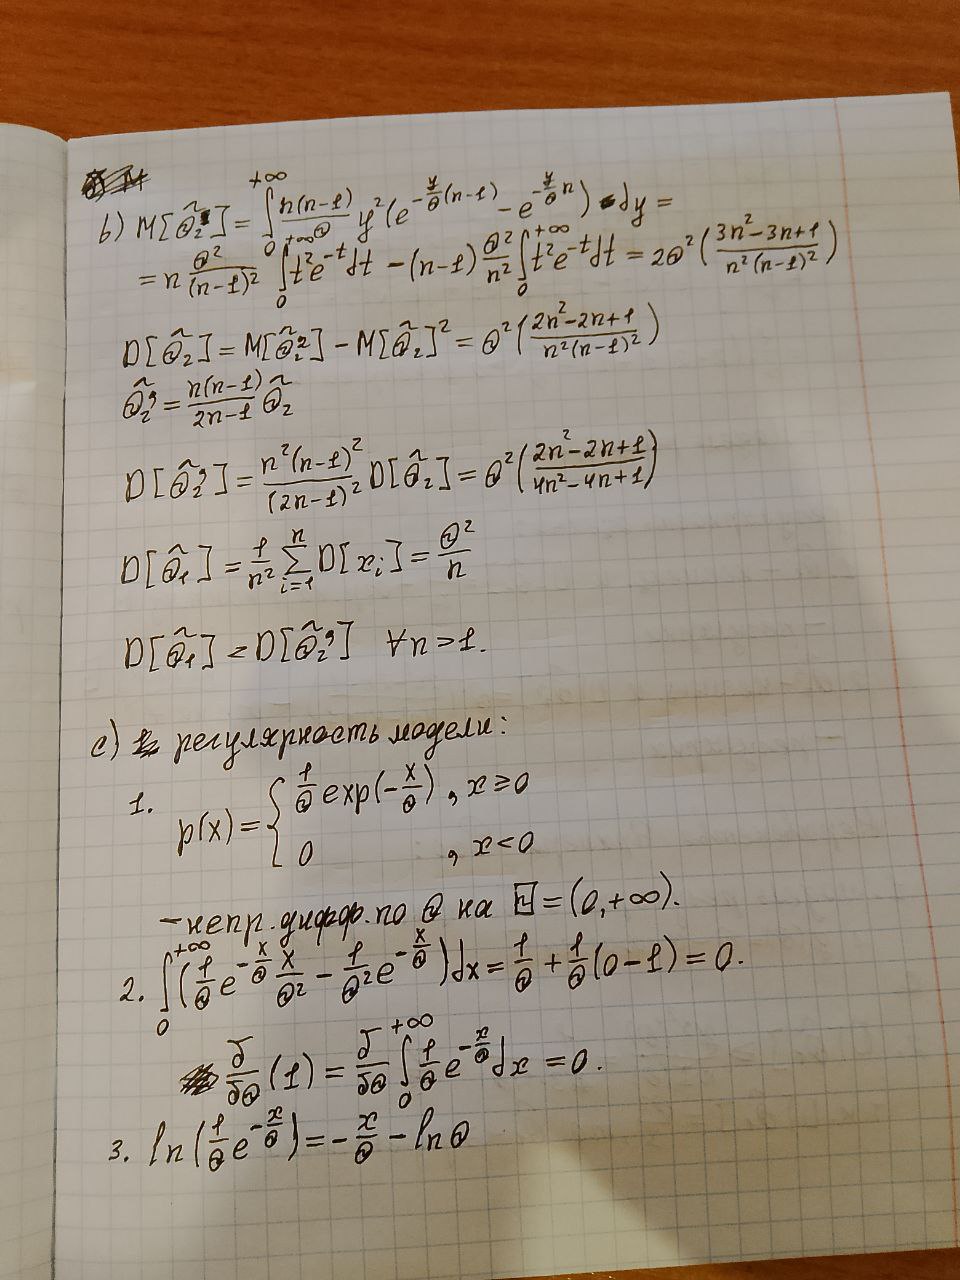 b) M[θ̃₂²] = ∫₀^{+∞} n(n-1)/θ y² (e^{-y/θ (n-1)} - e^{-y/θ n}) dy =
= n θ²/(n-1)² ∫₀^{+∞} t²e^{-t}dt - (n-1) θ²/n² ∫₀^{+∞} t²e^{-t}dt = 2θ² ((3n²-3n+1)/(n²(n-1)²))
D[θ̃₂] = M[θ̃₂²] - M[θ̃₂]² = θ² ((2n²-2n+1)/(n²(n-1)²))
θ̃₂' = n(n-1)/(2n-1) θ̃₂
D[θ̃₂'] = n²(n-1)²/(2n-1)² D[θ̃₂] = θ² ((2n²-2n+1)/(4n²-4n+1))
D[θ̃₁] = 1/n² Σ_{i=1}^{n} D[x_i] = θ²/n
D[θ̃₁] < D[θ̃₂'] ∀n>1.
c) регулярность модели:
1. p(x) = { 1/θ exp(-x/θ) , x≥0
0 , x<0
- непр. дифф. по θ на Θ = (0,+∞).
2. ∫₀^{+∞} (1/θ e^{-x/θ} x/θ² - 1/θ² e^{-x/θ}) dx = 1/θ + 1/θ (0-1) = 0.
δ/δθ (1) = δ/δθ ∫₀^{+∞} 1/θ e^{-x/θ} dx = 0.
3. ln(1/θ e^{-x/θ}) = - x/θ - ln θ